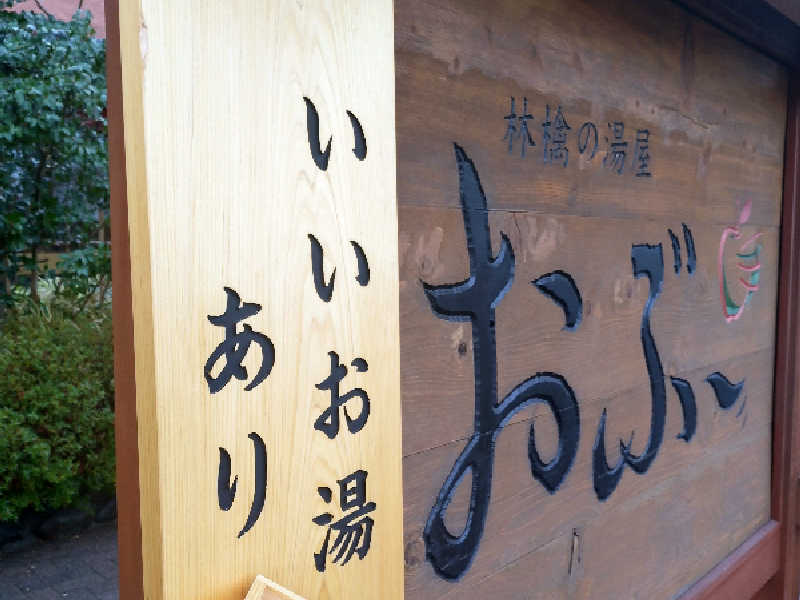 いいお湯
あり
林檎の湯屋
おぶ